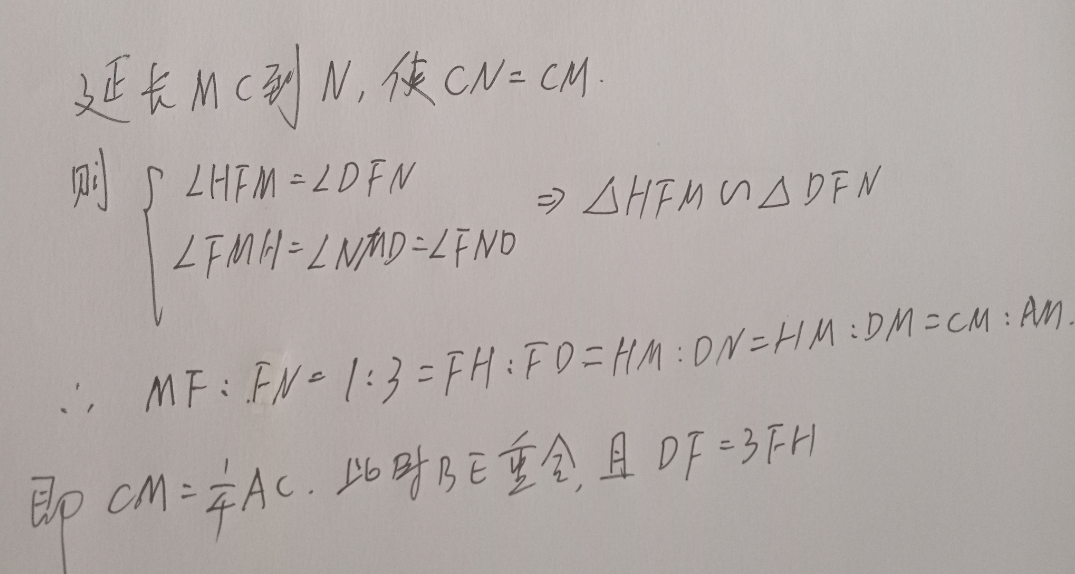 延长MC到N,使CN=CM.
则 { ∠HFM=∠DFN
∠FMH=∠NMD=∠FND ⇒ △HFM∽△DFN
∴ MF:FN=1:3=FH:FD=HM:DN=HM:DM=CM:AM.
即 CM=1/4AC. 此时BE重合,且DF=3FH